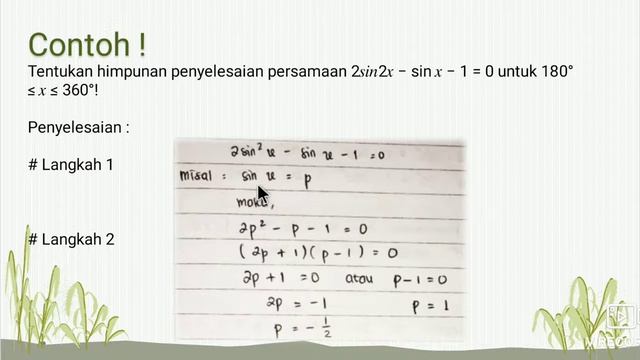 Contoh !
Tentukan himpunan penyelesaian persamaan 2sin2x − sin x − 1 = 0 untuk 180°
≤ x ≤ 360°!
Penyelesaian :
# Langkah 1
2 sin² x - sin x - 1 = 0
misal : sin x = p
maka,
# Langkah 2
2p² - p - 1 = 0
(2p + 1)(p - 1) = 0
2p + 1 = 0 atau p - 1 = 0
2p = -1 p = 1
p = - 1/2